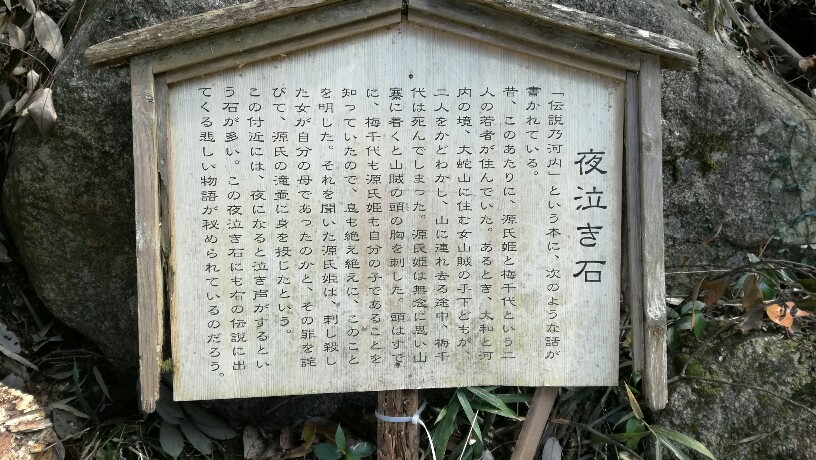 夜泣き石
「伝説乃河内」という本に、次のような話が
書かれている。
昔、このあたりに、源氏姫と梅千代という二
人の若者が住んでいた。あるとき、大和と河
内の境、大蛇山に住む女山賊の手下どもが、
二人をかどわかし、山に連れ去る途中、梅千
代は死んでしまった。源氏姫は無念に思い山
寨に着くと山賊の頭の胸を刺した。頭はすで
に、梅千代も源氏姫も自分の子であることを
知っていたので、息も絶え絶えに、このこと
を明した。それを聞いた源氏姫は、刺し殺し
た女が自分の母であったのかと、その罪を詫
びて、源氏の滝壷に身を投じたという。
この付近には、夜になると泣き声がするとい
う石が多い。この夜泣き石にも右の伝説に出
てくる悲しい物語が秘められているのだろう。